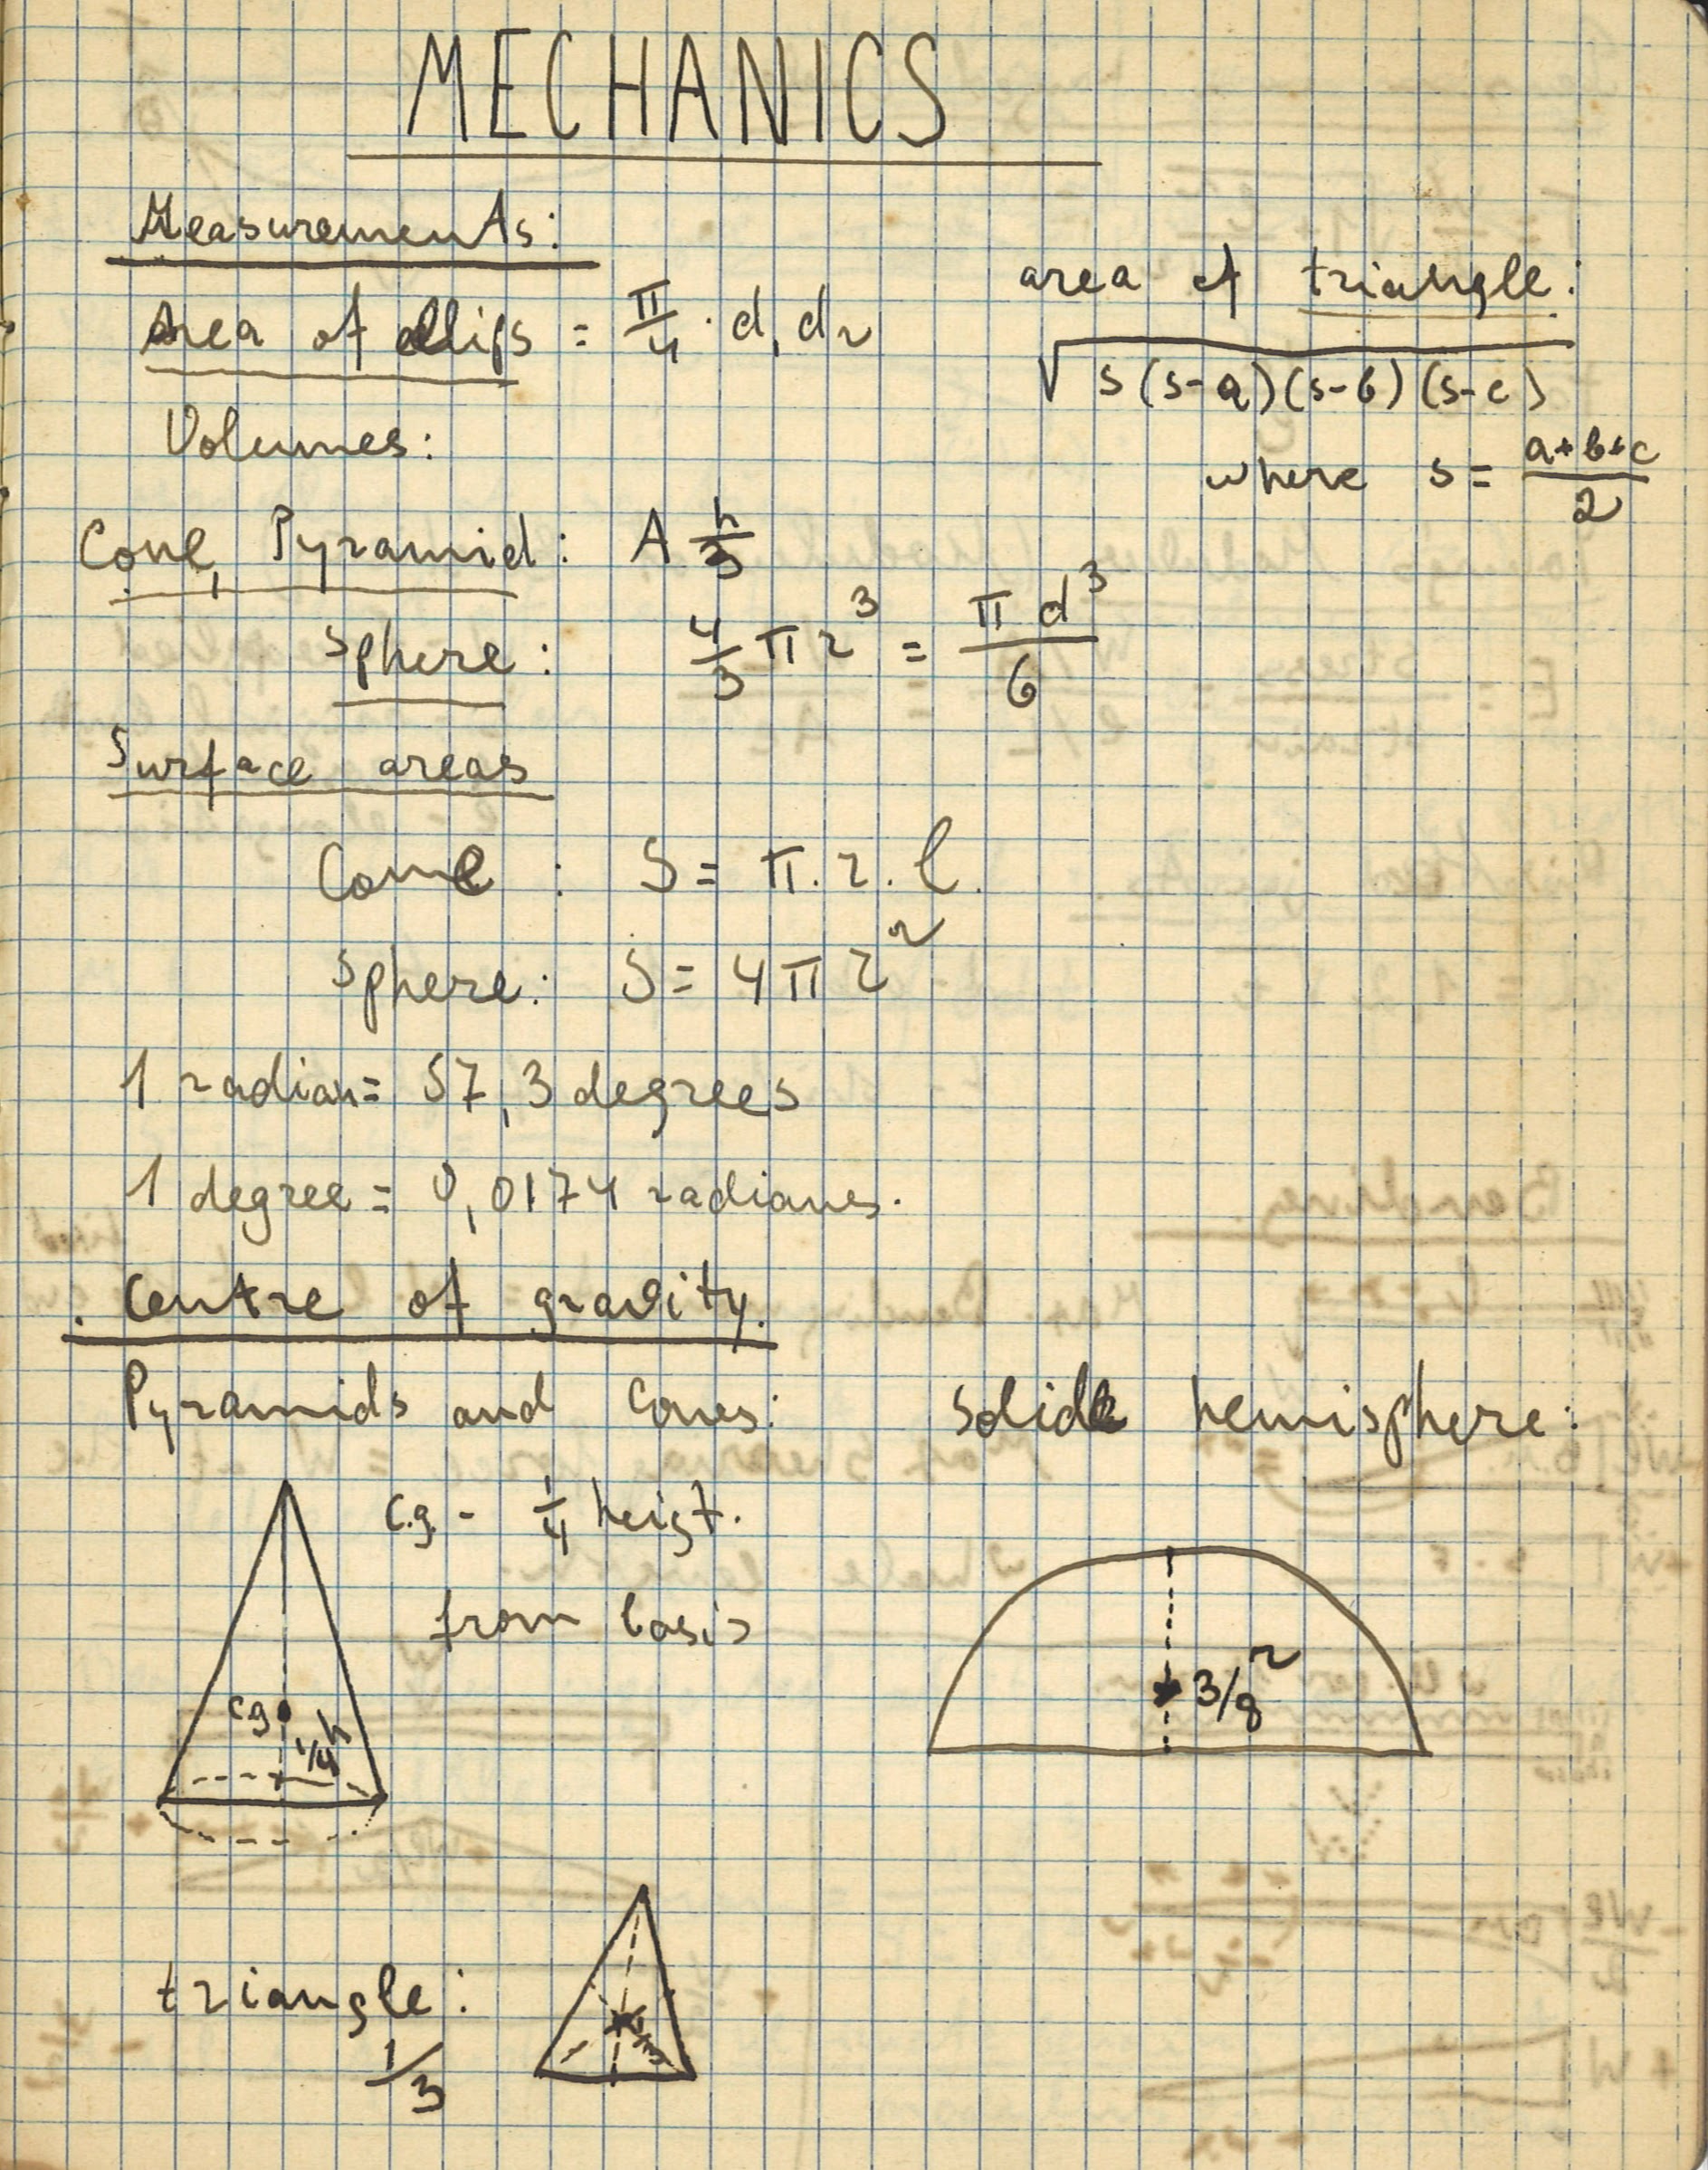 MECHANICS
Measurements:
Area of ellips = π/4 · d₁d₂
area of triangle:
√s(s-a)(s-b)(s-c)
where s = a+b+c/2
Volumes:
Cone, Pyramid: A h/3
Sphere: 4/3 π r³ = π d³/6
Surface areas
Cone : S = π.r.l.
Sphere: S = 4πr²
1 radian = 57,3 degrees
1 degree = 0,0174 radianes.
Centre of gravity.
Pyramids and Cones:
c.g. - 1/4 heigt.
from basis
cg
1/4h
Solide hemisphere:
3/8 r
triangle:
1/3
1/3